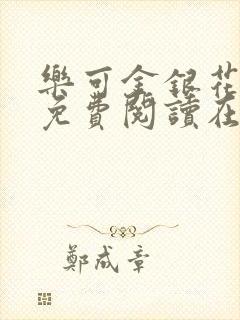 樂可金銀花
免費閱讀在
鄭成章